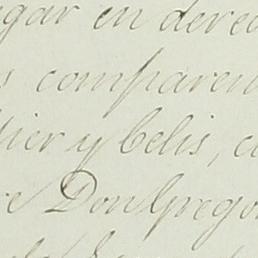 gar en derec
s comparen
llier y Celis, c
re Don Grego